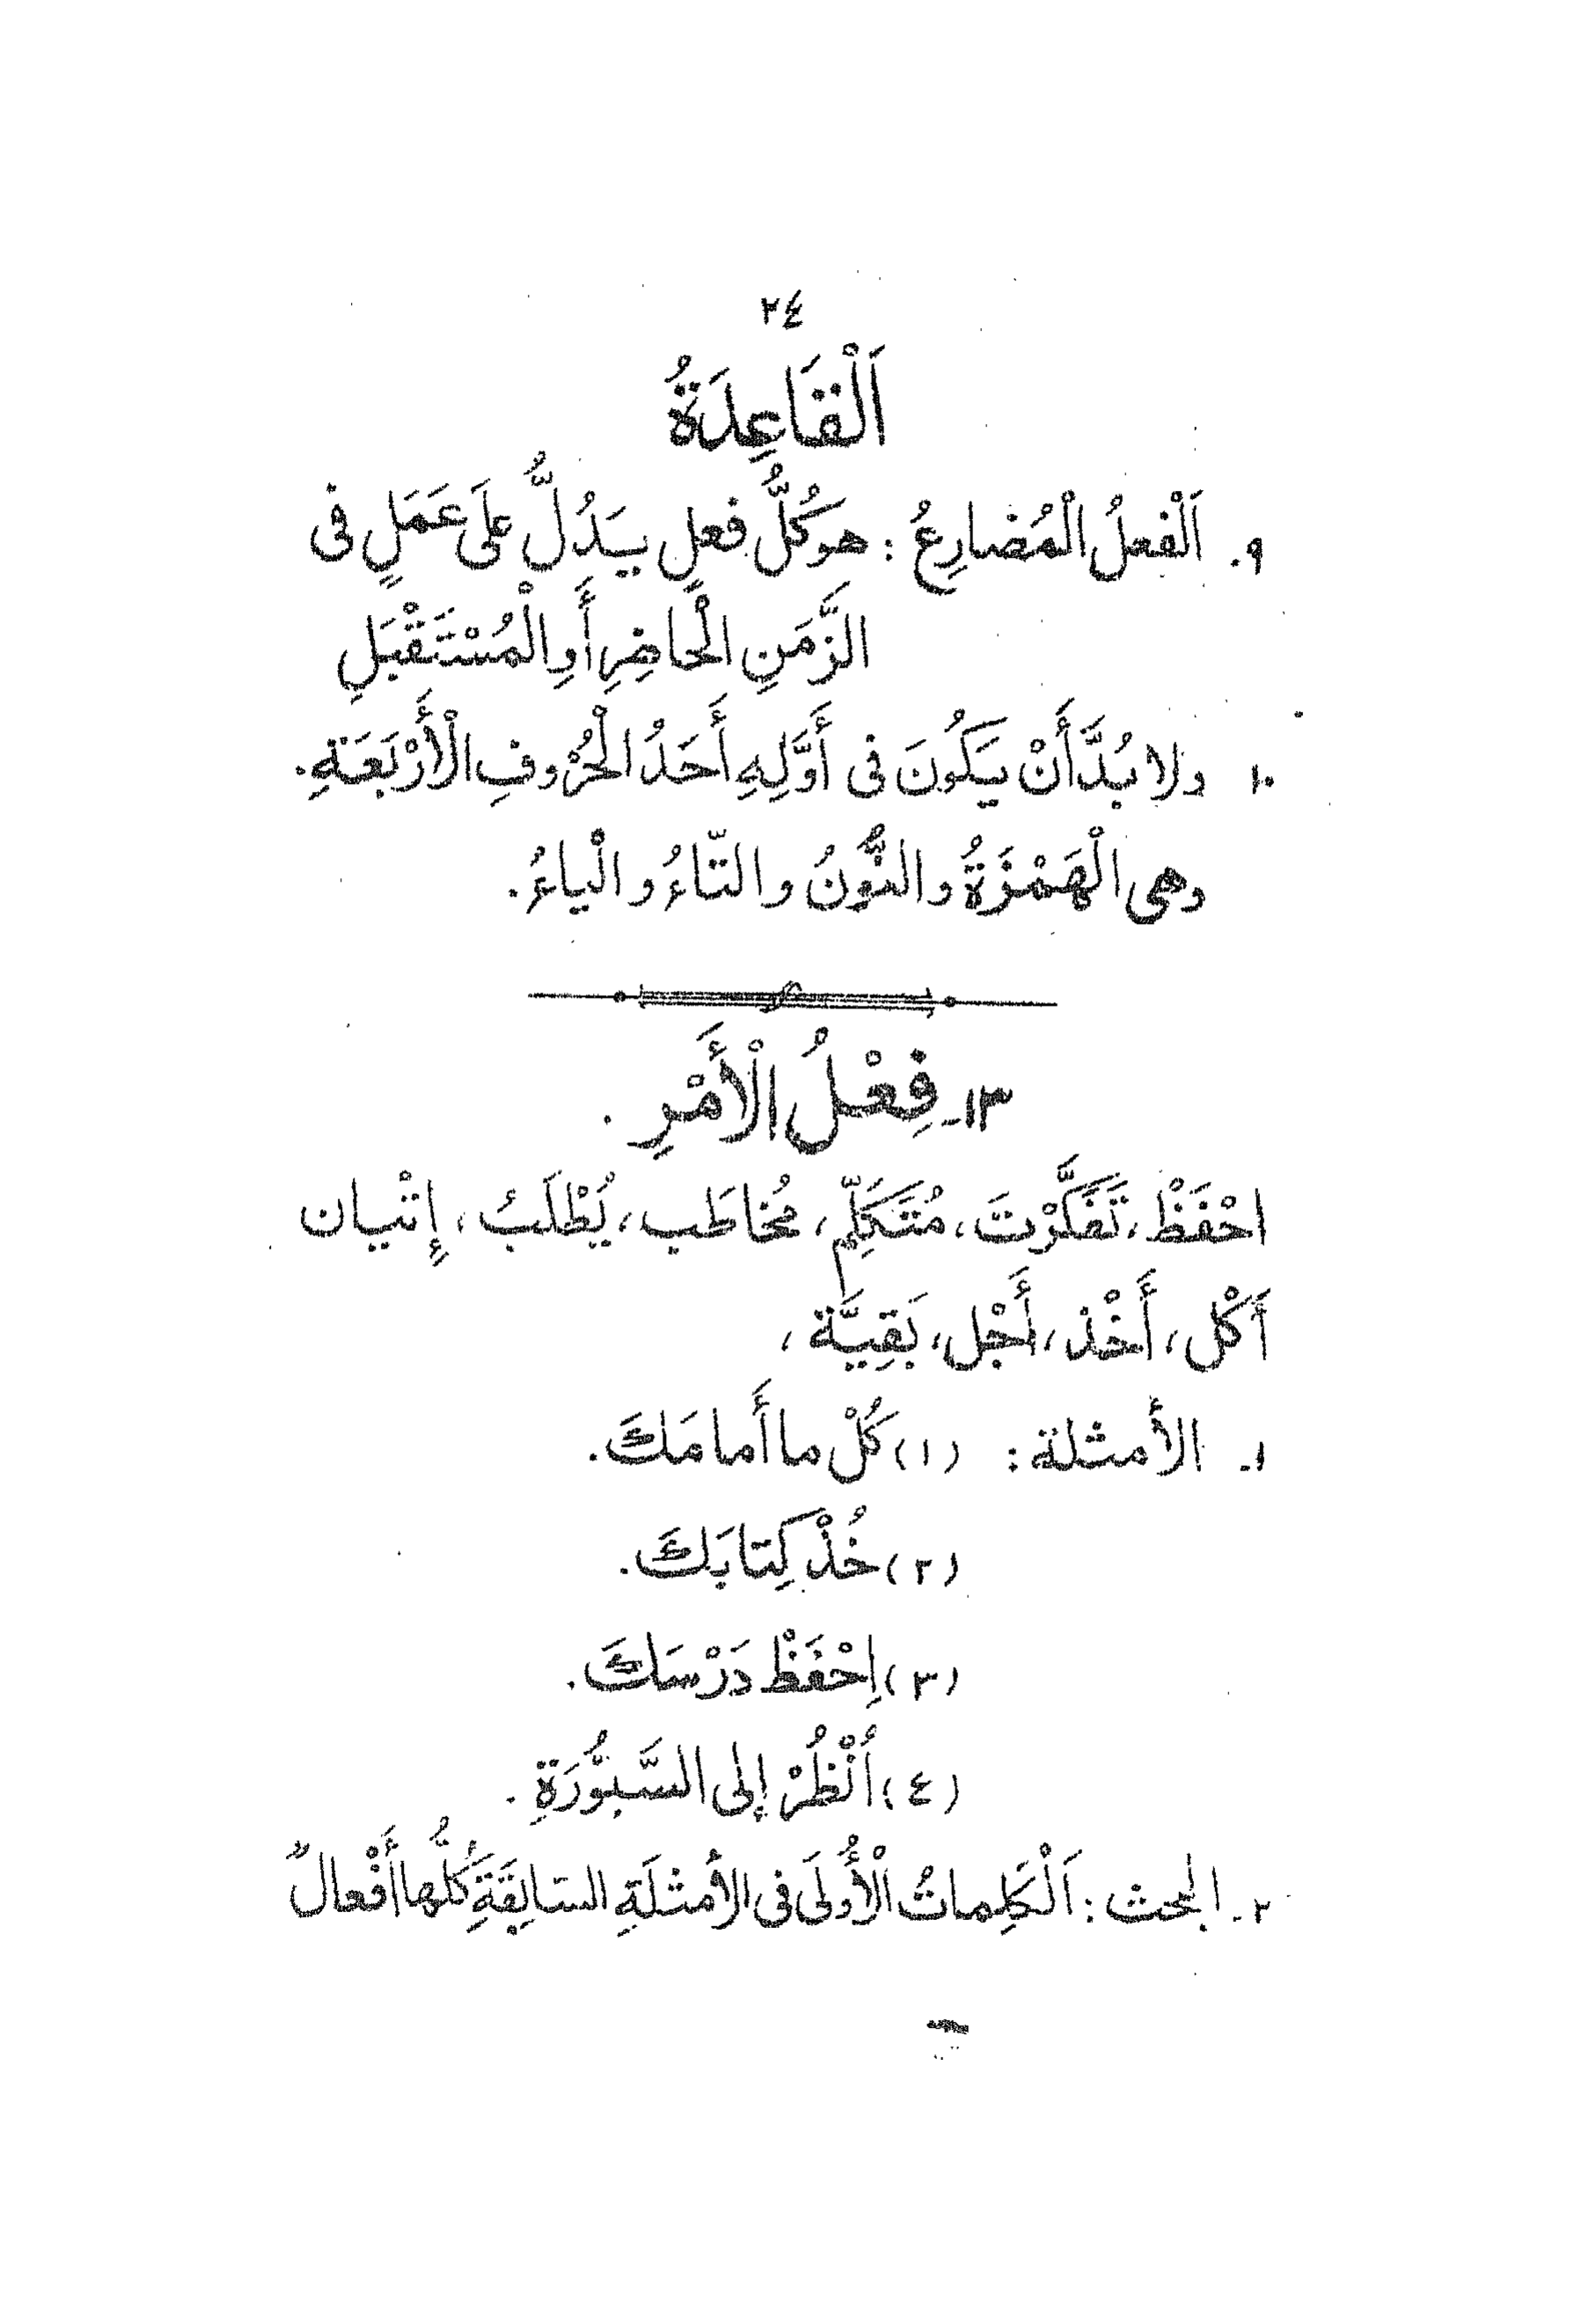 ٢٤
اَلْقَاعِدَةُ
٩. اَلْفعلُ الْمُضارِعُ : هو كُلُّ فعلٍ يَدُلُّ عَلَى عَمَلٍ فى
الزَّمَنِ الْحاضِرِ أَوِ الْمُسْتَقْبَلِ
١٠ ولا بُدَّ أَنْ يَكُونَ فى أَوَّلِهِ أَحَدُ الْحُرُوفِ الْأَرْبَعَةِ.
وهى الْهَمْزَةُ والنُّونُ والتّاءُ والْياءُ.
١٣- فِعْلُ الْأَمْرِ .
احْفَظْ، تَفَكَّرْتَ، مُتَكَلِّم، مُخاطَب، يُطْلَبُ، إِتْيان
أَكْل، أَخْذ، أَجْل، بَقِيَّة،
١- الأمثلة : (١) كُلْ ما أَمامَكَ.
(٢) خُذْ كِتابَكَ.
(٣) اِحْفَظْ دَرْسَكَ.
(٤) اُنْظُرْ إِلى السَّبُّورَةِ .
٢- البحث : اَلْكَلِماتُ الْأُولَى فى الأمثلَةِ السّابِقَةِ كُلُّها أَفْعالٌ